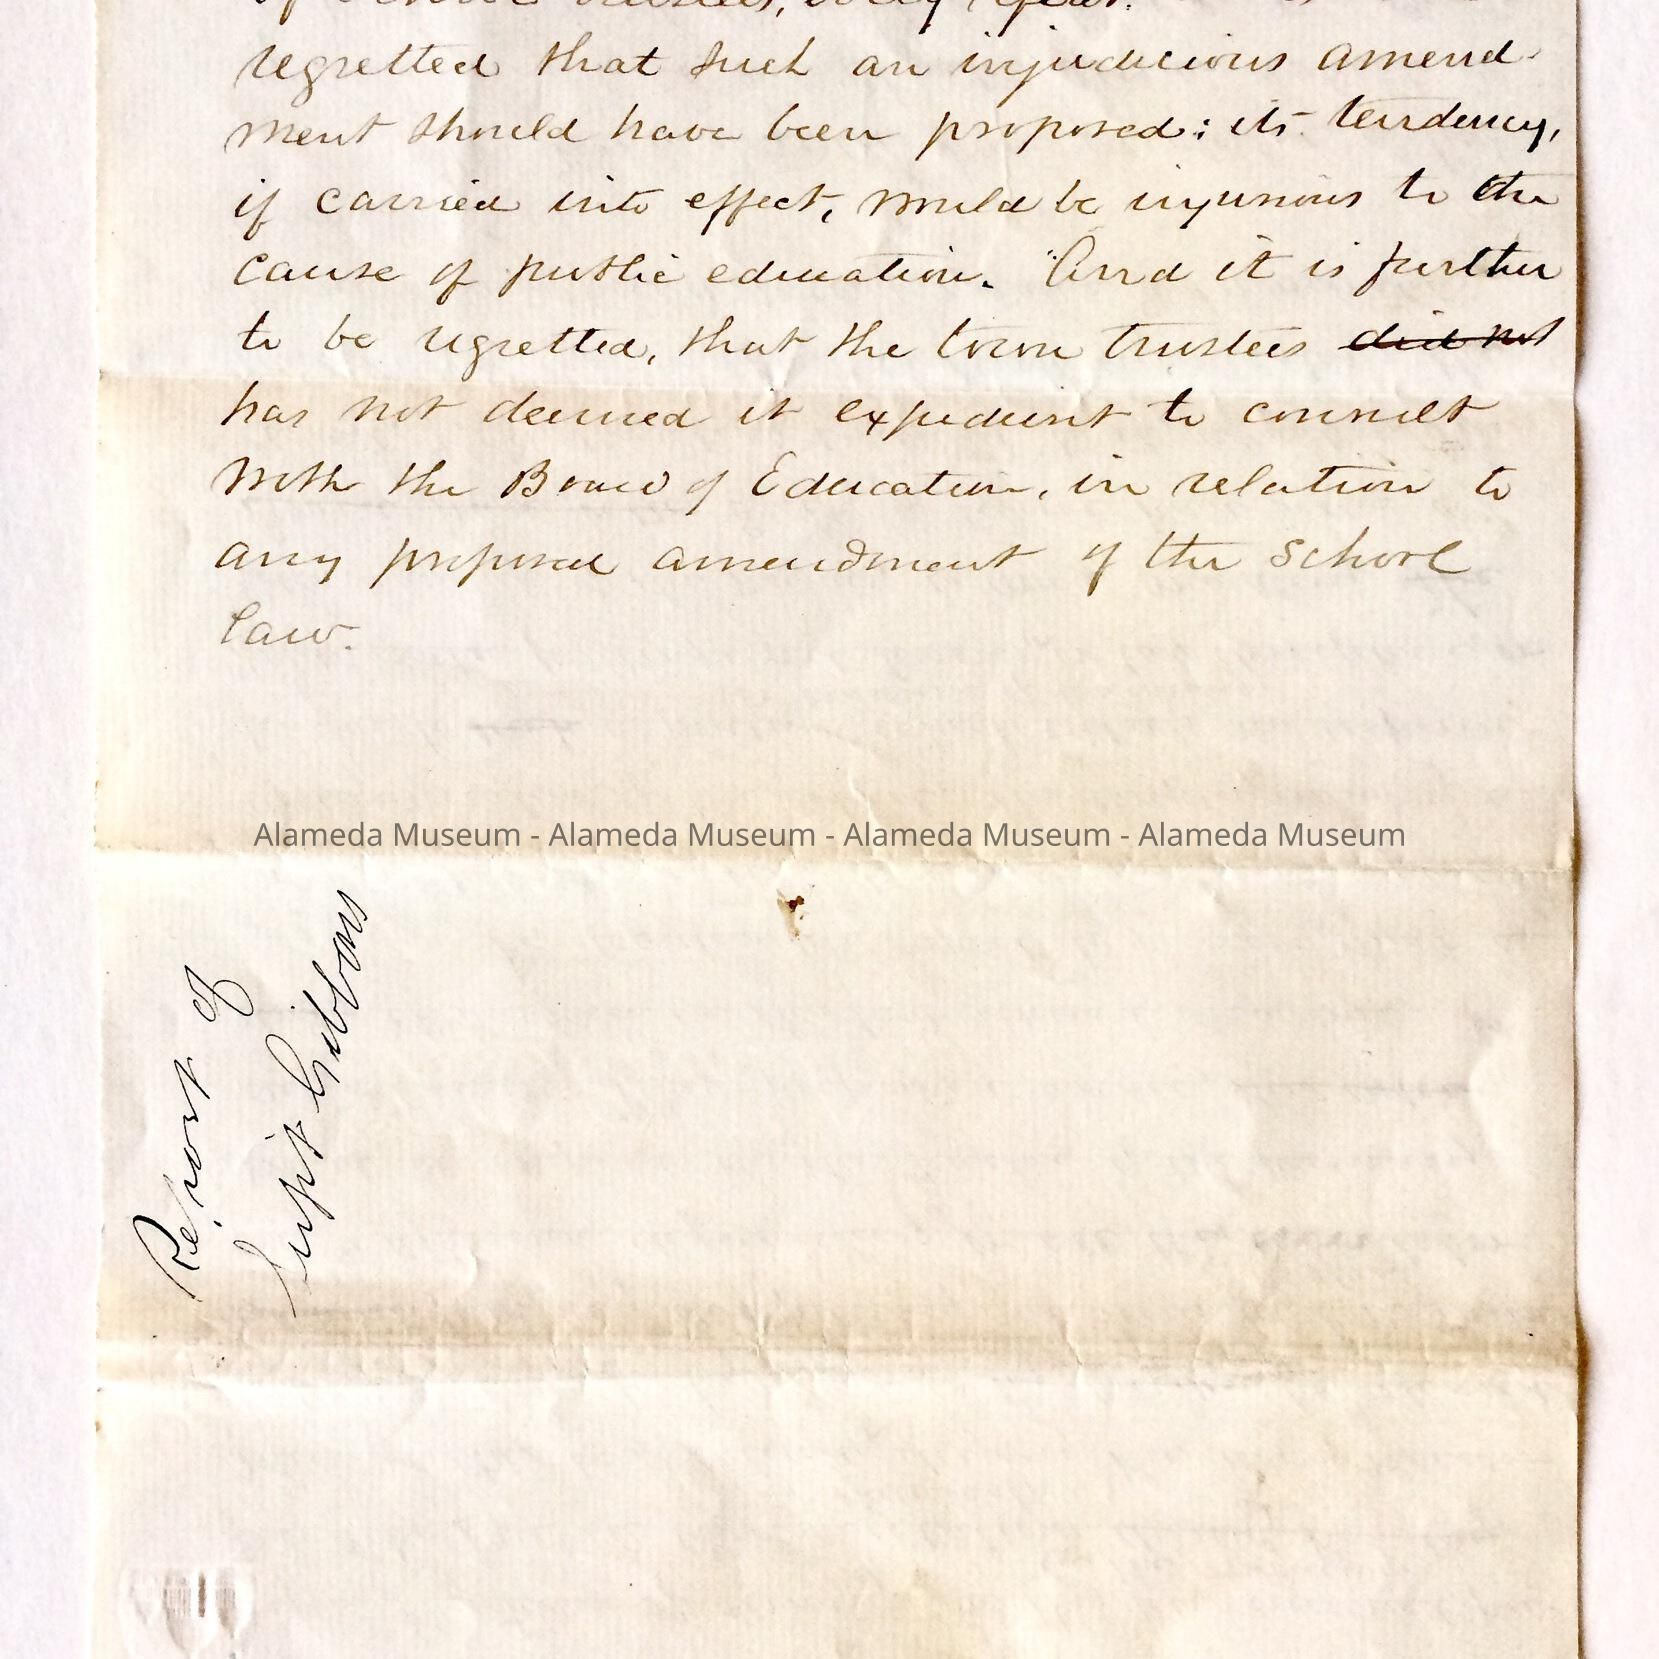 of school trustees, every year.
regretted that such an injudicious amend-
ment should have been proposed; its tendency,
if carried into effect, would be injurious to the
cause of public education. And it is further
to be regretted, that the town trustees did not
has not deemed it expedient to consult
with the Board of Education, in relation to
any proposed amendment of the School
law.
Alameda Museum - Alameda Museum - Alameda Museum - Alameda Museum
Report of
Supt Gibbons